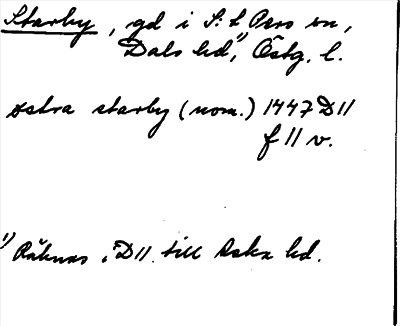 Starby, gd i S:t Pers sn,
Dals hd,¹⁾ Östg. l.
östra starby (nom.) 1447 D11
f 11 v.
¹⁾ Räknas i D11 till Aska hd.